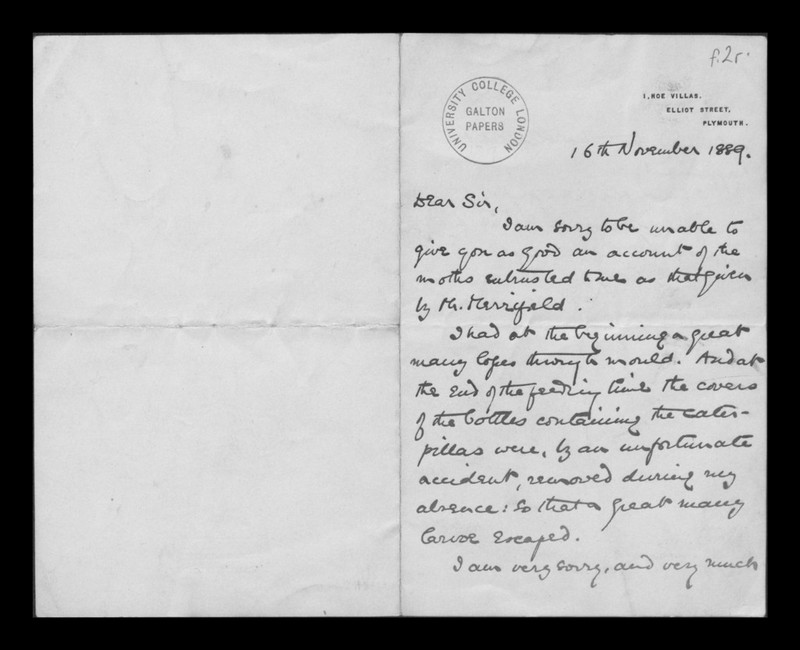 f.2r.
UNIVERSITY COLLEGE LONDON
GALTON
PAPERS
1, HOE VILLAS,
ELLIOT STREET,
PLYMOUTH.
16th November 1889.
Dear Sir,
I am sorry to be unable to
give you as good an account of the
moths entrusted to me as that given
by Mr. Merrifield.
I had at the beginning a great
many losses through mould. And at
the end of the feeding time the covers
of the bottles containing the cater-
pillas were, by an unfortunate
accident, removed during my
absence: so that a great many
larvæ escaped.
I am very sorry, and very much